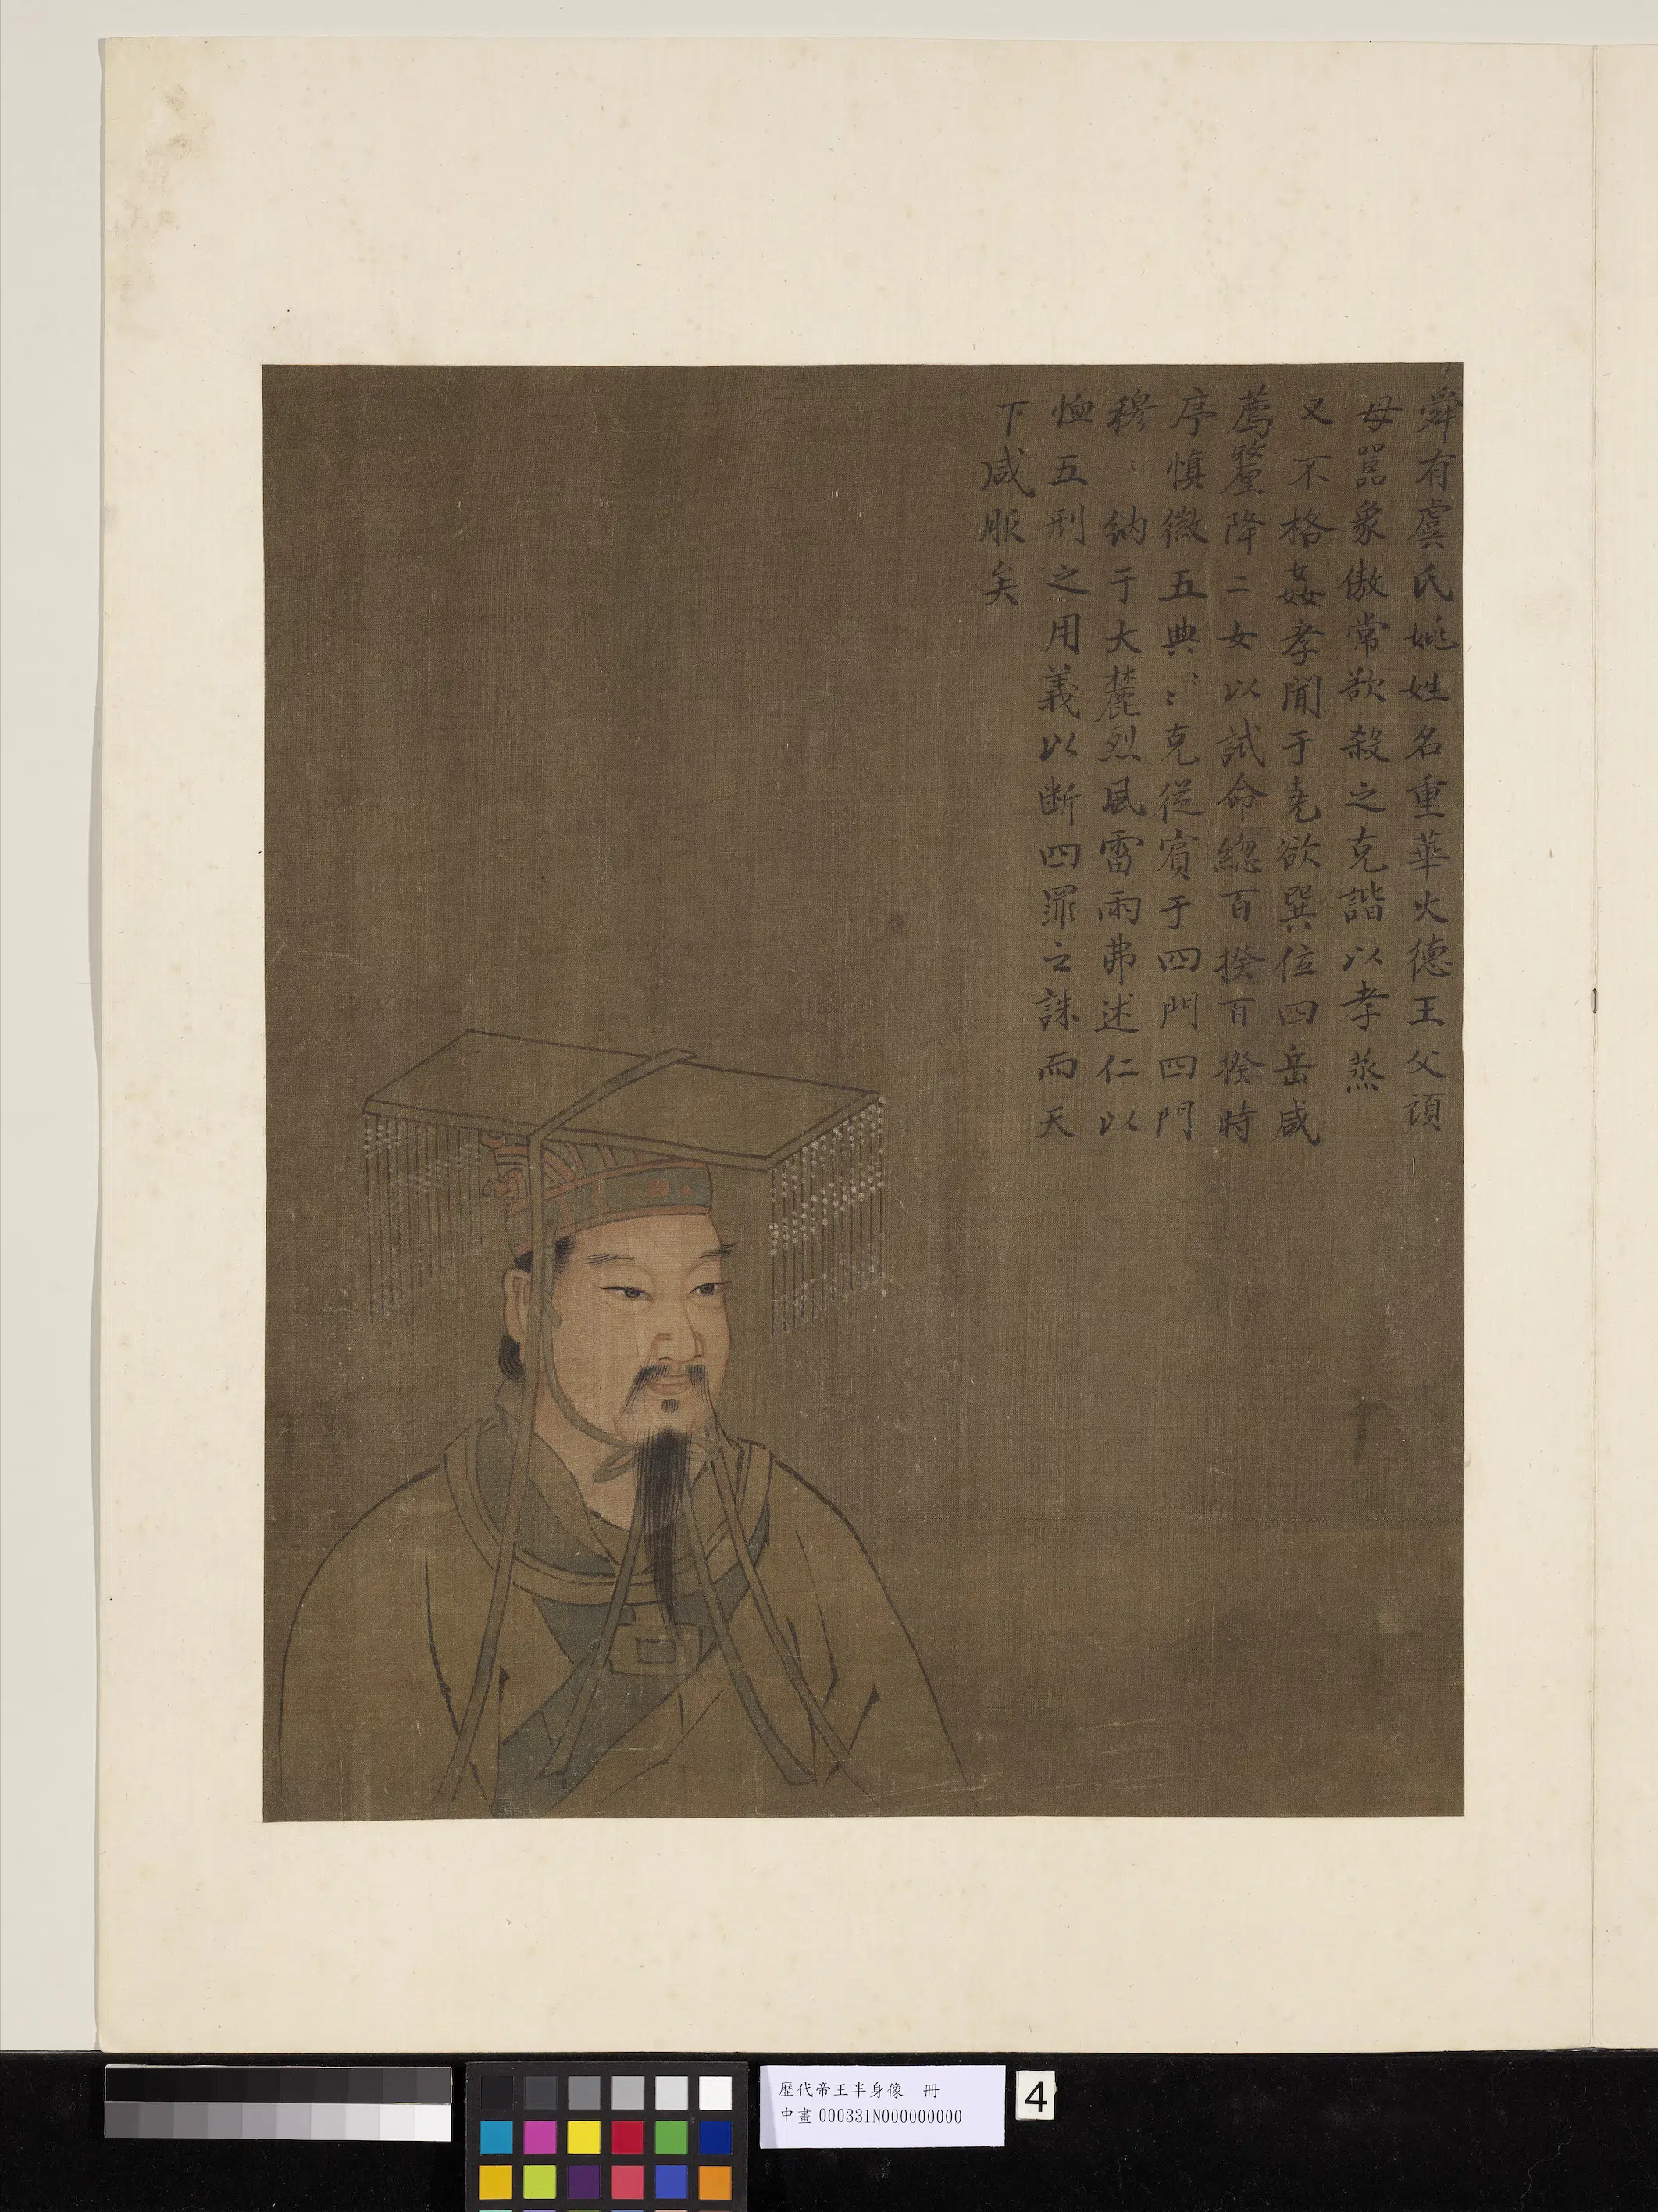 舜有虞氏姚姓名重華火德王父頑
母嚚象傲常欲殺之克諧以孝烝
乂不格姦孝聞于堯欲巽位四岳咸
薦釐降二女以試命總百揆百揆時
序慎徽五典〻〻克從賓于四門四門
穆〻納于大麓烈風雷雨弗迷仁以
恤五刑之用義以断四罪之誅而天
下咸服矣
歷代帝王半身像 冊
中畫 000331N000000000
4